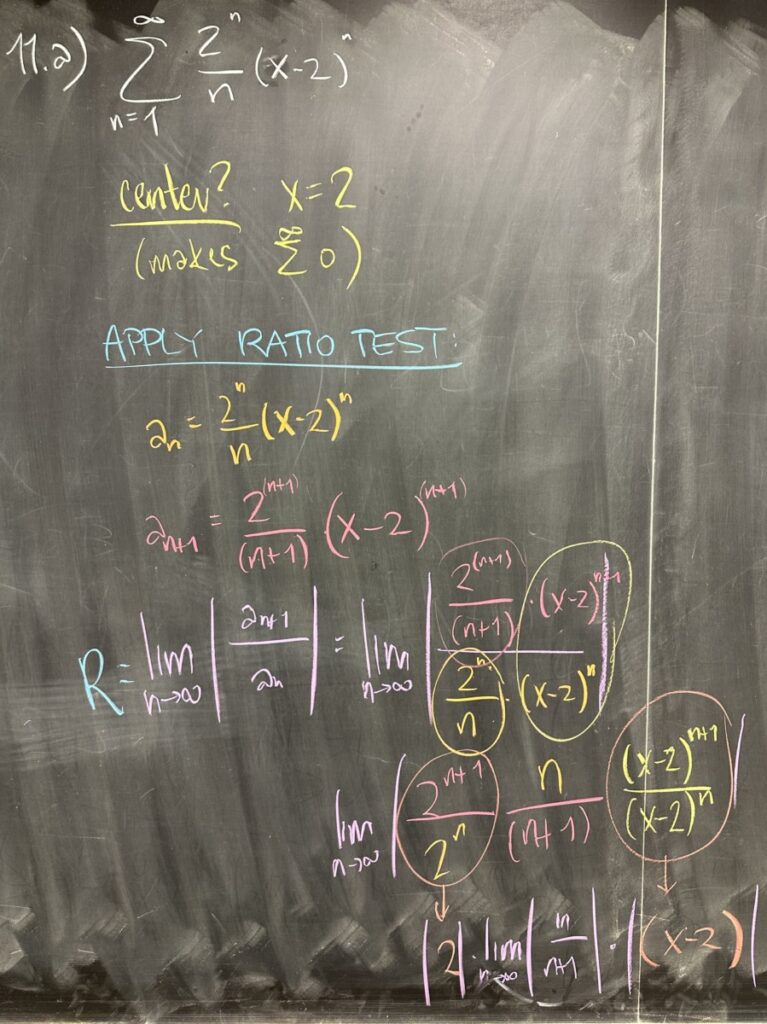 11.a) ∑_{n=1}^{∞} 2^n/n (x-2)^n
center? x=2
(makes ∑^{∞} 0)
APPLY RATIO TEST:
a_n = 2^n/n (x-2)^n
a_{n+1} = 2^{(n+1)}/(n+1) (x-2)^{(n+1)}
R = lim_{n→∞} | a_{n+1}/a_n | = lim_{n→∞} | (2^{(n+1)}/(n+1) · (x-2)^{n+1}) / (2^n/n · (x-2)^n) |
lim_{n→∞} | 2^{n+1}/2^n n/(n+1) (x-2)^{n+1}/(x-2)^n |
|2| · lim_{n→∞} | n/(n+1) | · |(x-2)|